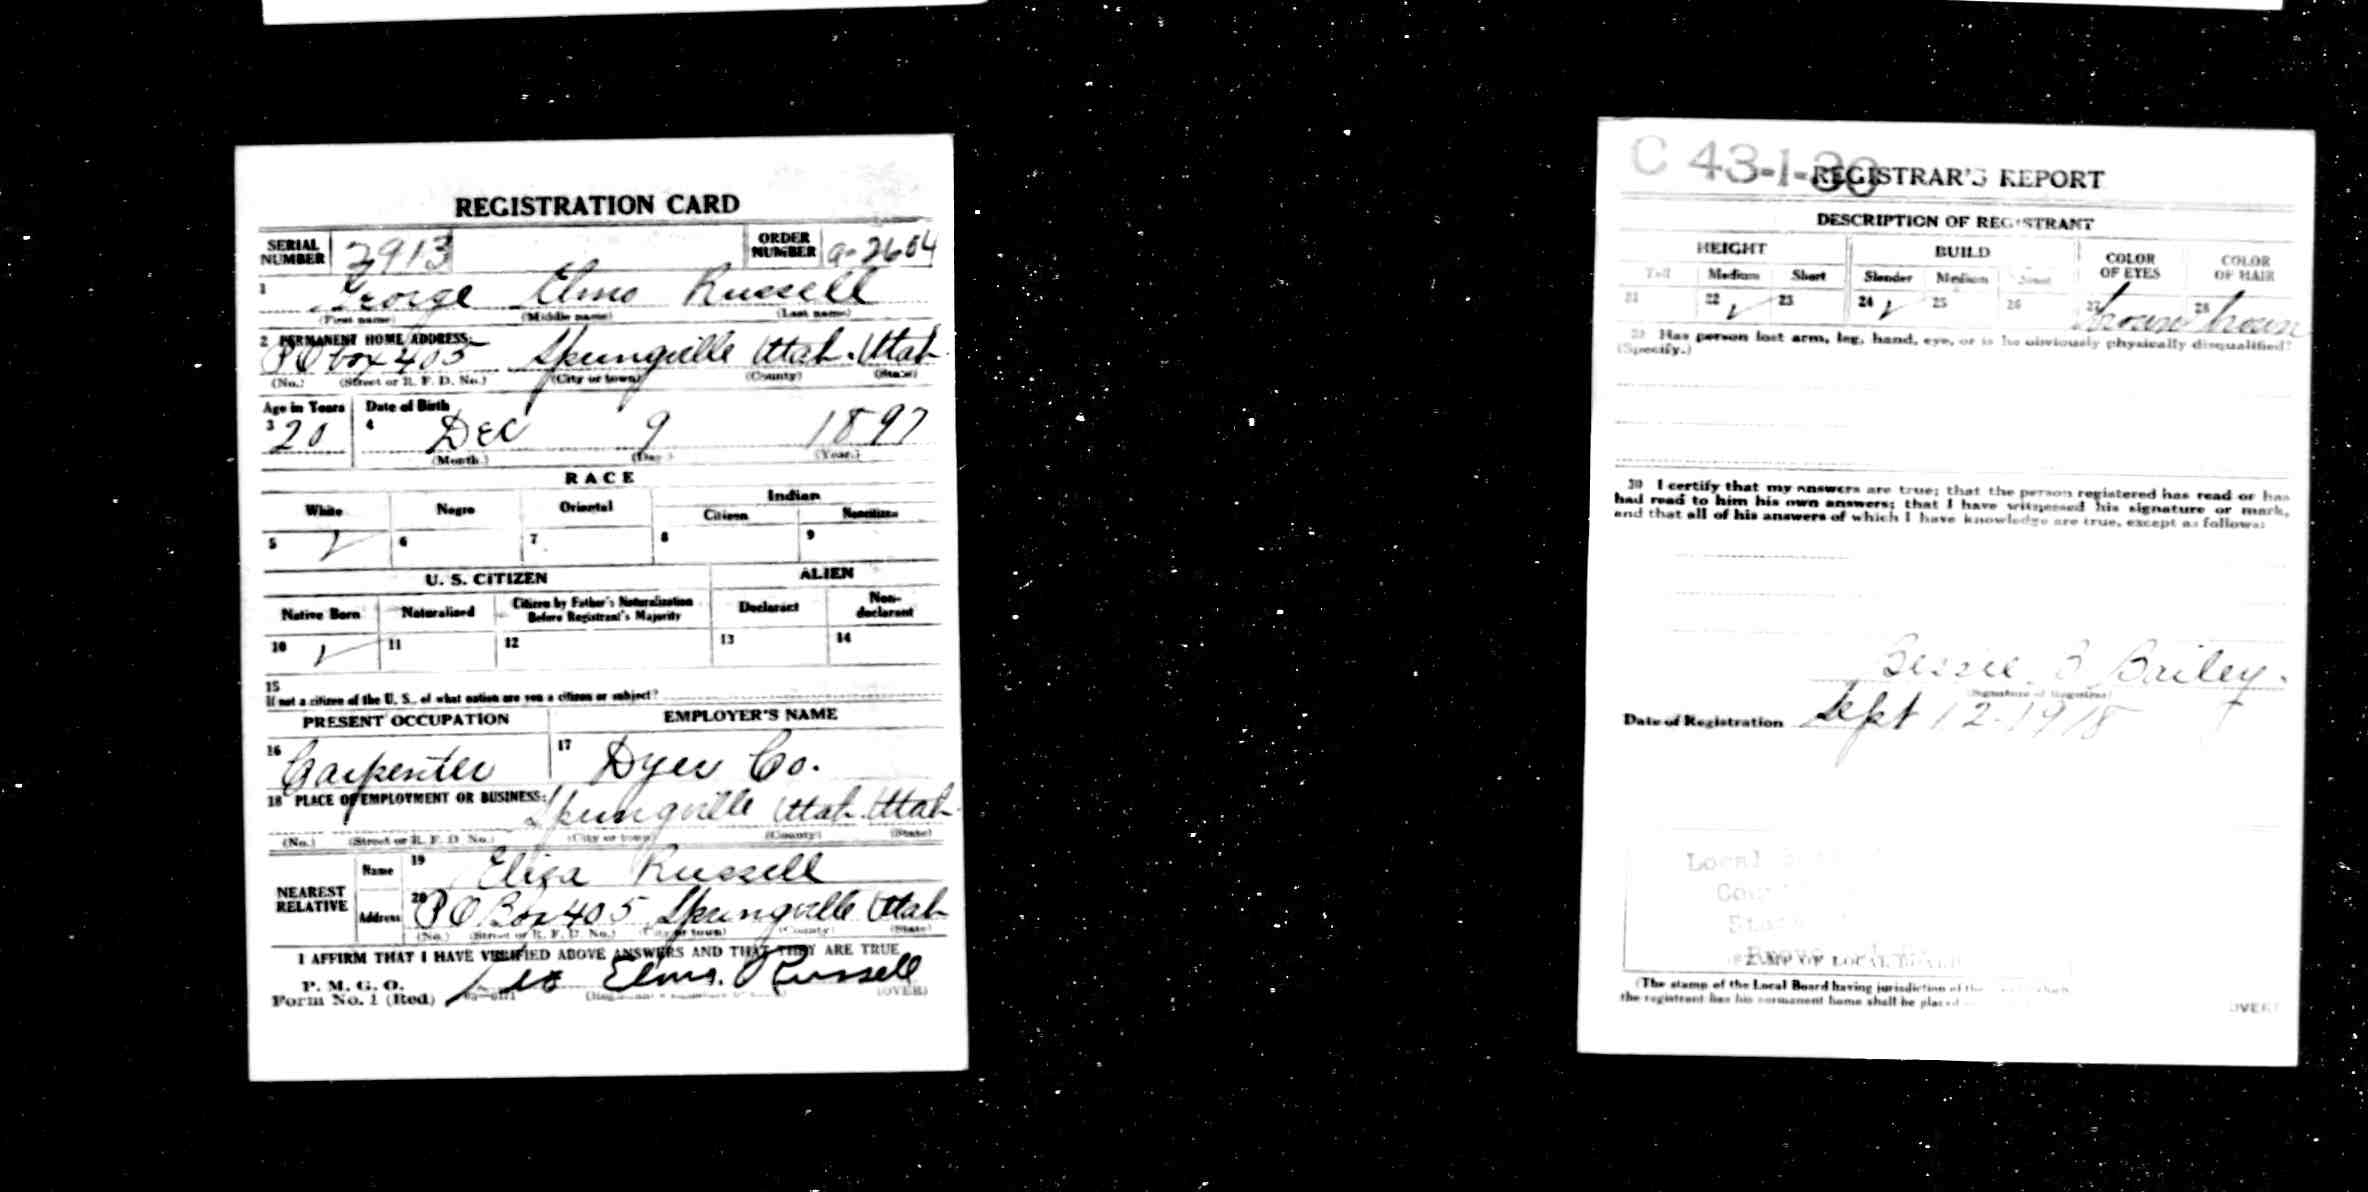 REGISTRATION CARD
SERIAL NUMBER 2913 ORDER NUMBER a-2604
1 George Elmo Russell
(First name) (Middle name) (Last name)
2 PERMANENT HOME ADDRESS:
P O box 405 Springville Utah. Utah
(No.) (Street or R. F. D. No.) (City or town) (County) (State)
Age in Years Date of Birth
3 20 4 Dec 9 1897
(Month.) (Day.) (Year.)
RACE
White Negro Oriental Indian
Citizen Noncitizen
5 ✓ 6 7 8 9
U. S. CITIZEN ALIEN
Native Born Naturalized Citizen by Father's Naturalization Before Registrant's Majority Declarant Non-declarant
10 ✓ 11 12 13 14
15
If not a citizen of the U. S., of what nation are you a citizen or subject?
PRESENT OCCUPATION EMPLOYER'S NAME
16 Carpenter 17 Dyer Co.
18 PLACE OF EMPLOYMENT OR BUSINESS:
Springville Utah. Utah
(No.) (Street or R. F. D. No.) (City or town) (County) (State)
NEAREST RELATIVE
Name 19 Eliza Russell
Address 20 P O Box 405 Springville Utah
(No.) (Street or R. F. D. No.) (City or town) (County) (State)
I AFFIRM THAT I HAVE VERIFIED ABOVE ANSWERS AND THAT THEY ARE TRUE
P. M. G. O.
Form No. 1 (Red) Elmo. Russell
(OVER)
C 43-1-30 REGISTRAR'S REPORT
DESCRIPTION OF REGISTRANT
HEIGHT BUILD COLOR OF EYES COLOR OF HAIR
Tall Medium Short Slender Medium Stout
21 22 ✓ 23 24 ✓ 25 26 27 brown 28 brown
29 Has person lost arm, leg, hand, eye, or is he obviously physically disqualified?
(Specify.)
30 I certify that my answers are true; that the person registered has read or has
had read to him his own answers; that I have witnessed his signature or mark,
and that all of his answers of which I have knowledge are true, except as follows:
Bessie B Bailey.
(Signature of Registrar)
Date of Registration Sept 12-1918
Local
State
Provo
STAMP OF LOCAL BOARD
(The stamp of the Local Board having jurisdiction of the
the registrant has his permanent home shall be placed
OVER)